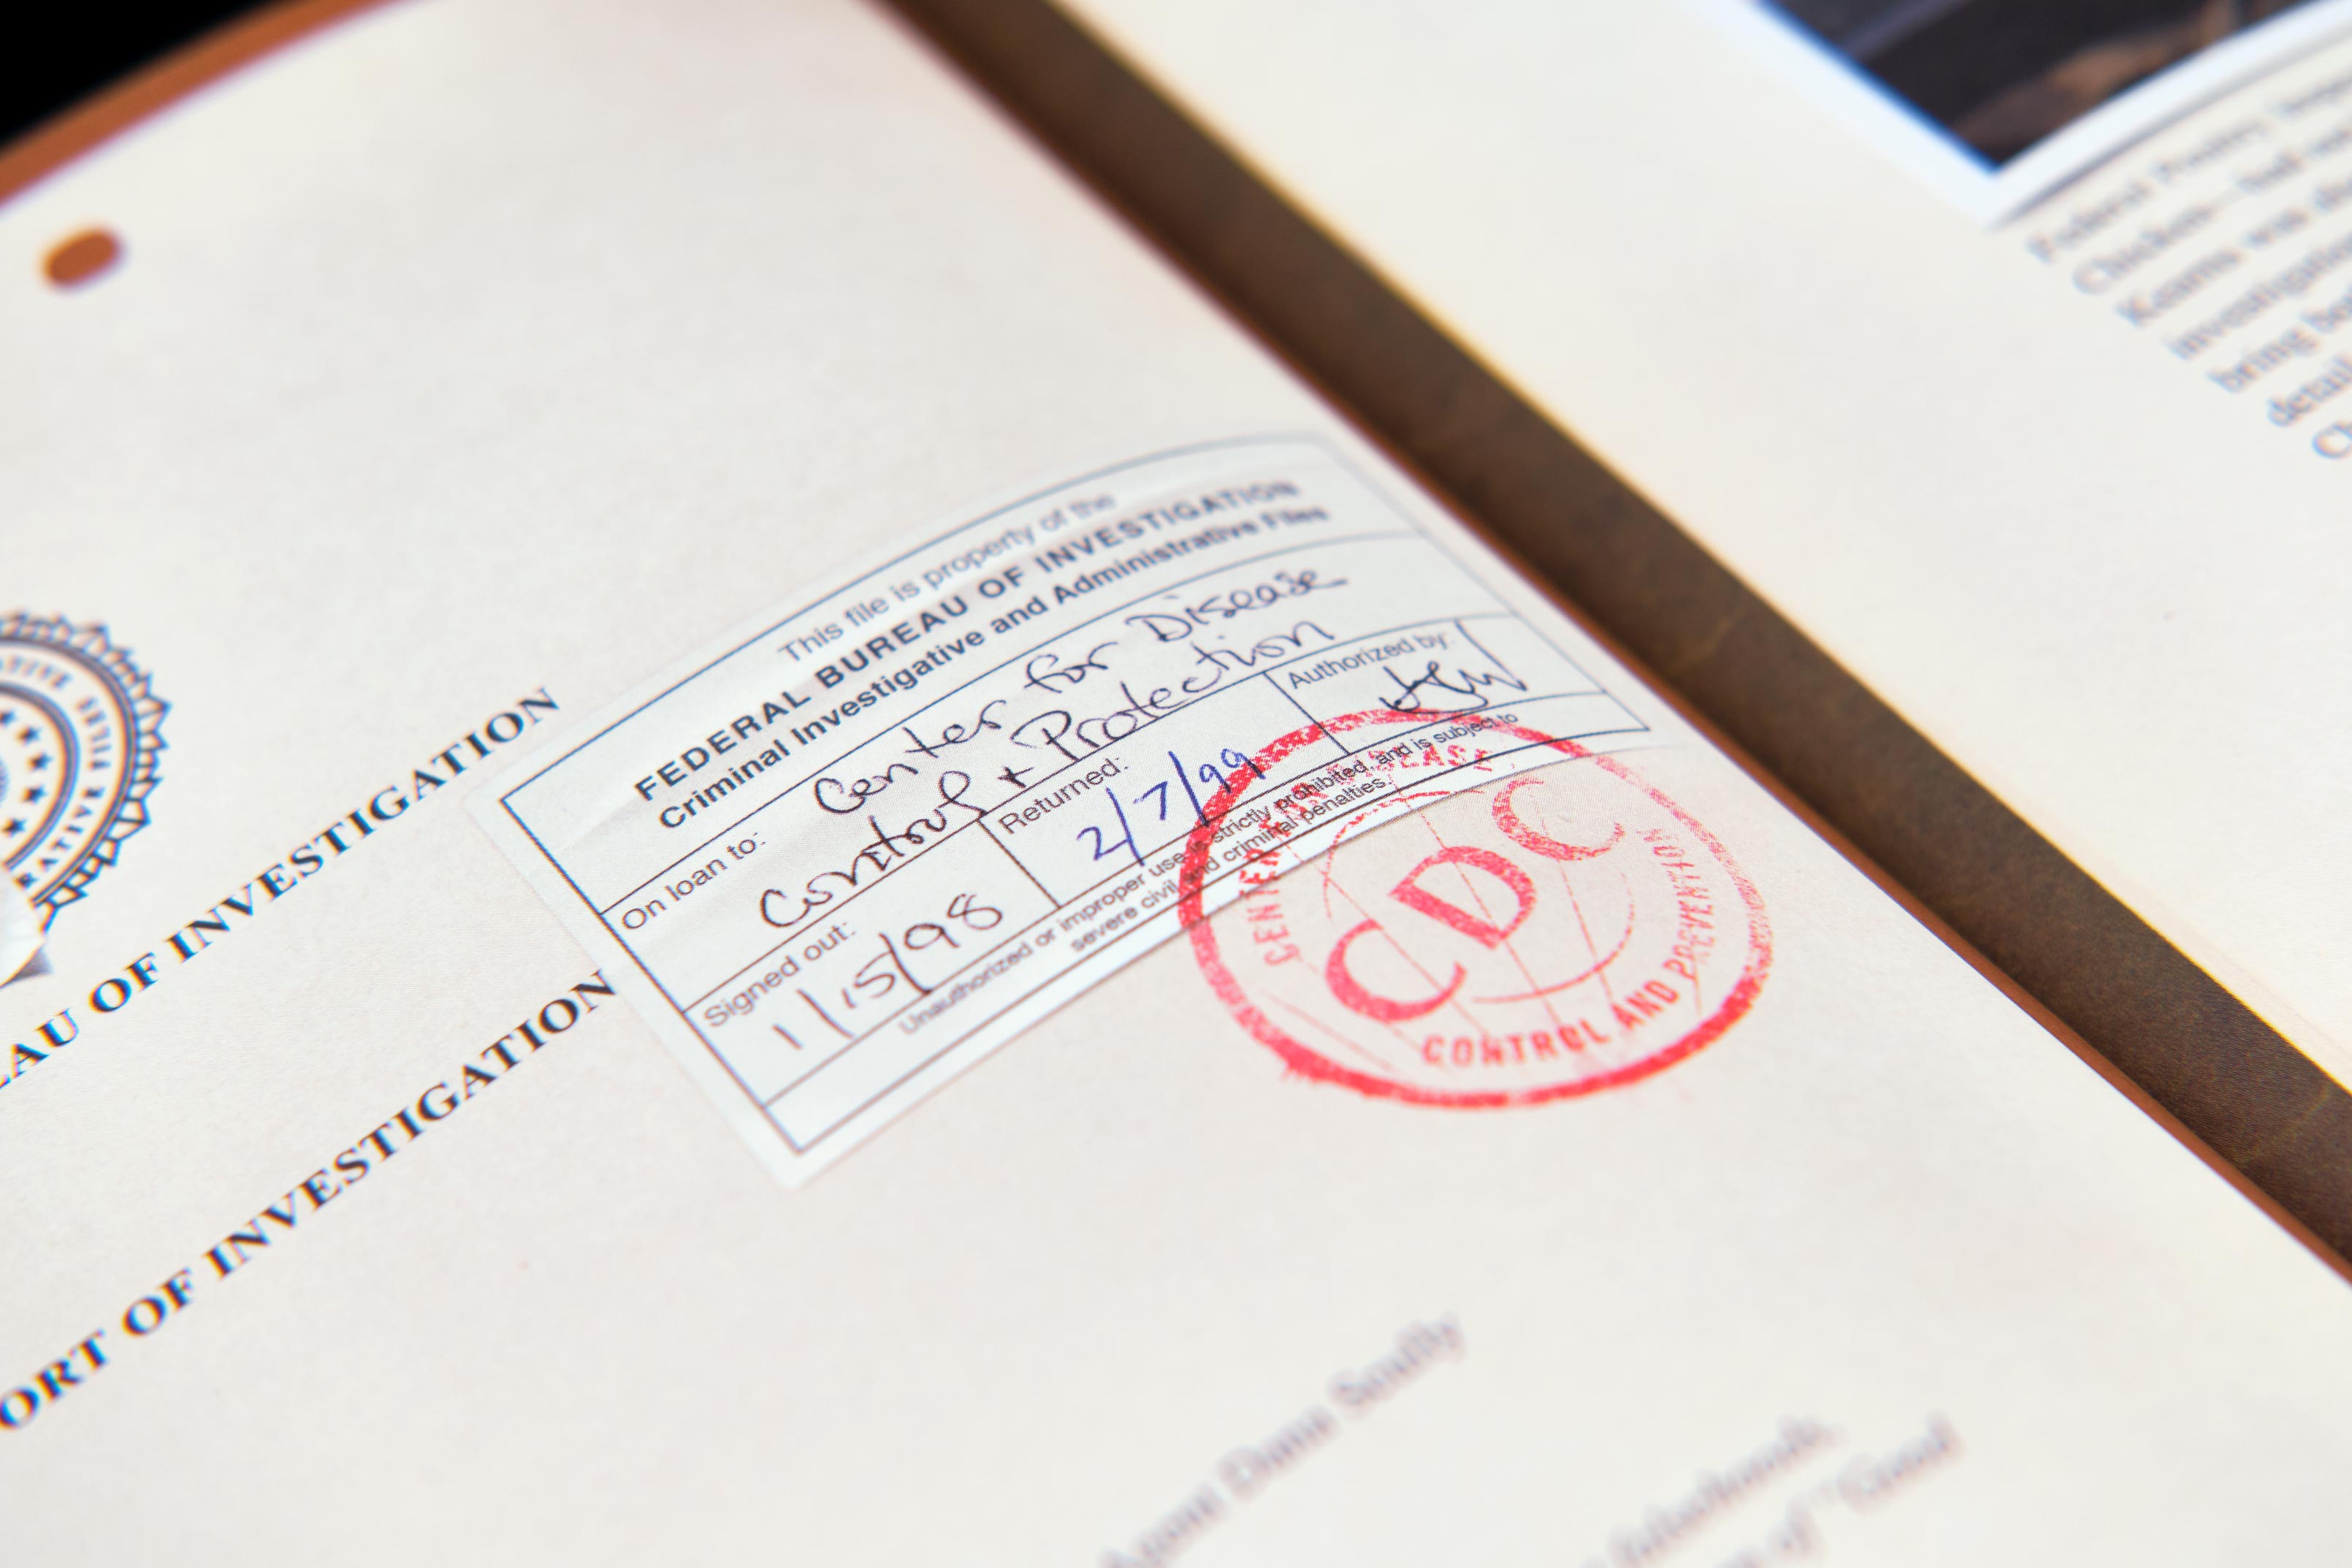 This file is property of the
FEDERAL BUREAU OF INVESTIGATION
Criminal Investigative and Administrative Files
On loan to: Center for Disease
Control + Protection
Signed out:
1/15/98
Returned:
2/7/99
Authorized by:
Unauthorized or improper use is strictly prohibited, and is subject to
severe civil and criminal penalties.
CDC
CONTROL AND PREVENTION
ATIVE FILES
RATIVE
EAU OF INVESTIGATION
ORT OF INVESTIGATION
Agent Dana Scully
of "Good
Federal
Chicken
Kearns was
investigation
bring
detail